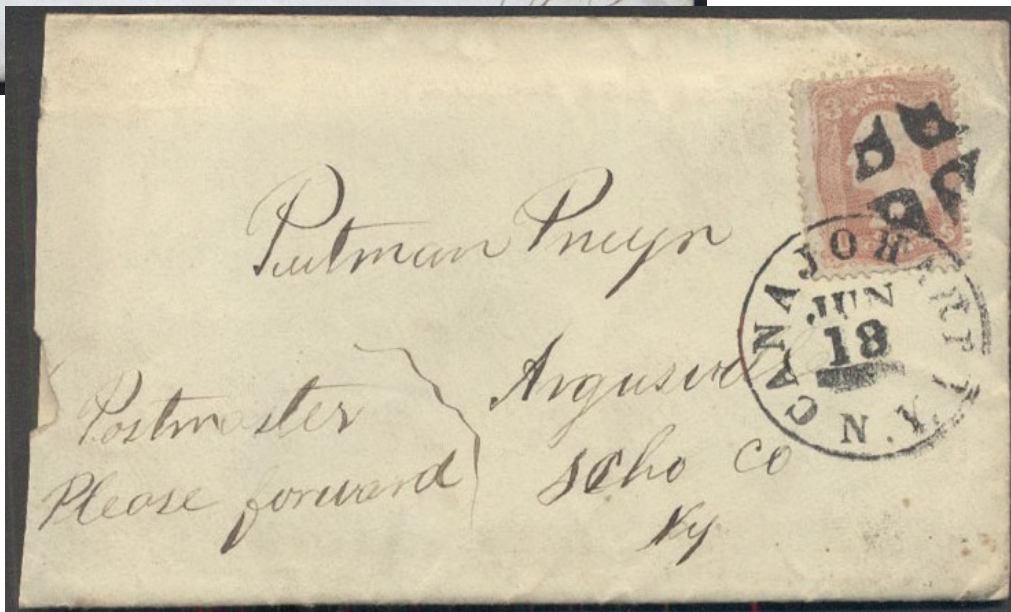 Putman Pneyn
Argusville
Scho Co
Ny
Postmaster
Please forward
CANAJOHARIE N.Y.
JUN
18
3